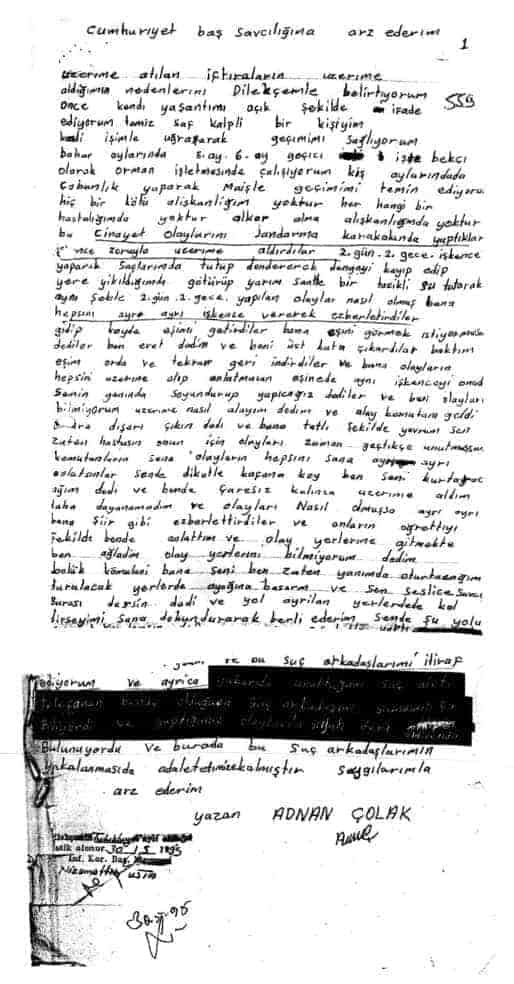 Cumhuriyet baş savcılığına arz ederim
1
üzerime atılan iftiraların üzerime
aldığımın nedenlerini Dilekçemle belirtiyorum 559
önce kendi yaşantımı açık şekilde ifade
ediyorum temiz saf kalpli bir kişiyim
kendi işimle uğraşarak geçimimi sağlıyorum
bahar aylarında 5.ay. 6.ay geçici işte bekci
olarak orman işletmesinde çalışıyorum kış aylarındada
Çobanlık yaparak Maişle geçimimi temin ediyoru
hiç bir kötü alışkanlığım yoktur her hangi bir
hastalığımda yoktur alkor alma alışkanlığımda yoktur
bu Cinayet Olaylarını Jandarma karakolunda yaptıklar
işkence zoruyla üzerime aldırdılar 2.gün.2.gece.işkence
yaparak Saçlarımda tutup döndererek dengeyi kayıp edip
yere yıkıldığımda götürüp yarım saatlik bir tazikli su tutarak
aynı şekilc 2.gün.2.gece. yapılan olaylar nasıl olmuş bana
hepsini ayrı ayrı işkence vererek ezberlettirdiler
gidip köyde eşimi getirdiler bana eşini görmek istiyormusun
dediler ben evet dedim ve beni üst kata çıkardılar baktım
eşim orda ve tekrar geri indirdiler ve bana olayların
hepsini üzerine alıp anlatmasan eşinede aynı işkenceyi onada
Senin yanında Soyundurup yapıcağız dediler ve ben olayları
bilmiyorum üzerime nasıl alayım dedim ve alay komutanı geldi
dışarı çıkın dedi ve bana tatlı şekilde yavrum sen
zaten hastasın onun için olayları zaman geçtikçe unutmuşsun
komutanların sana olayların hepsini sana ayrı ayrı
anlatsınlar sende dikatle kafana koy ben seni kurtarac
ağım dedi ve bende çaresiz kalınca üzerime aldım
daha dayanamadım ve olayları Nasıl olmuşsa ayrı ayrı
bana Şiir gibi ezberlettirdiler ve onların öğrettiyi
şekilde bende anlattım ve olay yerlerine gitmekte
ben ağladım olay yerlerini bilmiyorum dedim
bölük komutanı bana seni ben zaten yanımda oturtacağım
durulacak yerlerde ayağına basarım ve sen seslice Savcı
burası dersin dedi ve yol ayrılan yerlerdede kol
dirseyimi Sana dokundurarak berli ederim Sende Şu yolu
ve bu suç arkadaşlarımı itiraf
ediyorum ve ayrica
Bulunuyordu ve burada bu Suç arkadaşlarımın
yakalanmasıda adaletetimizekalmıştır Saygılarımla
arz ederim
yazan ADNAN ÇOLAK